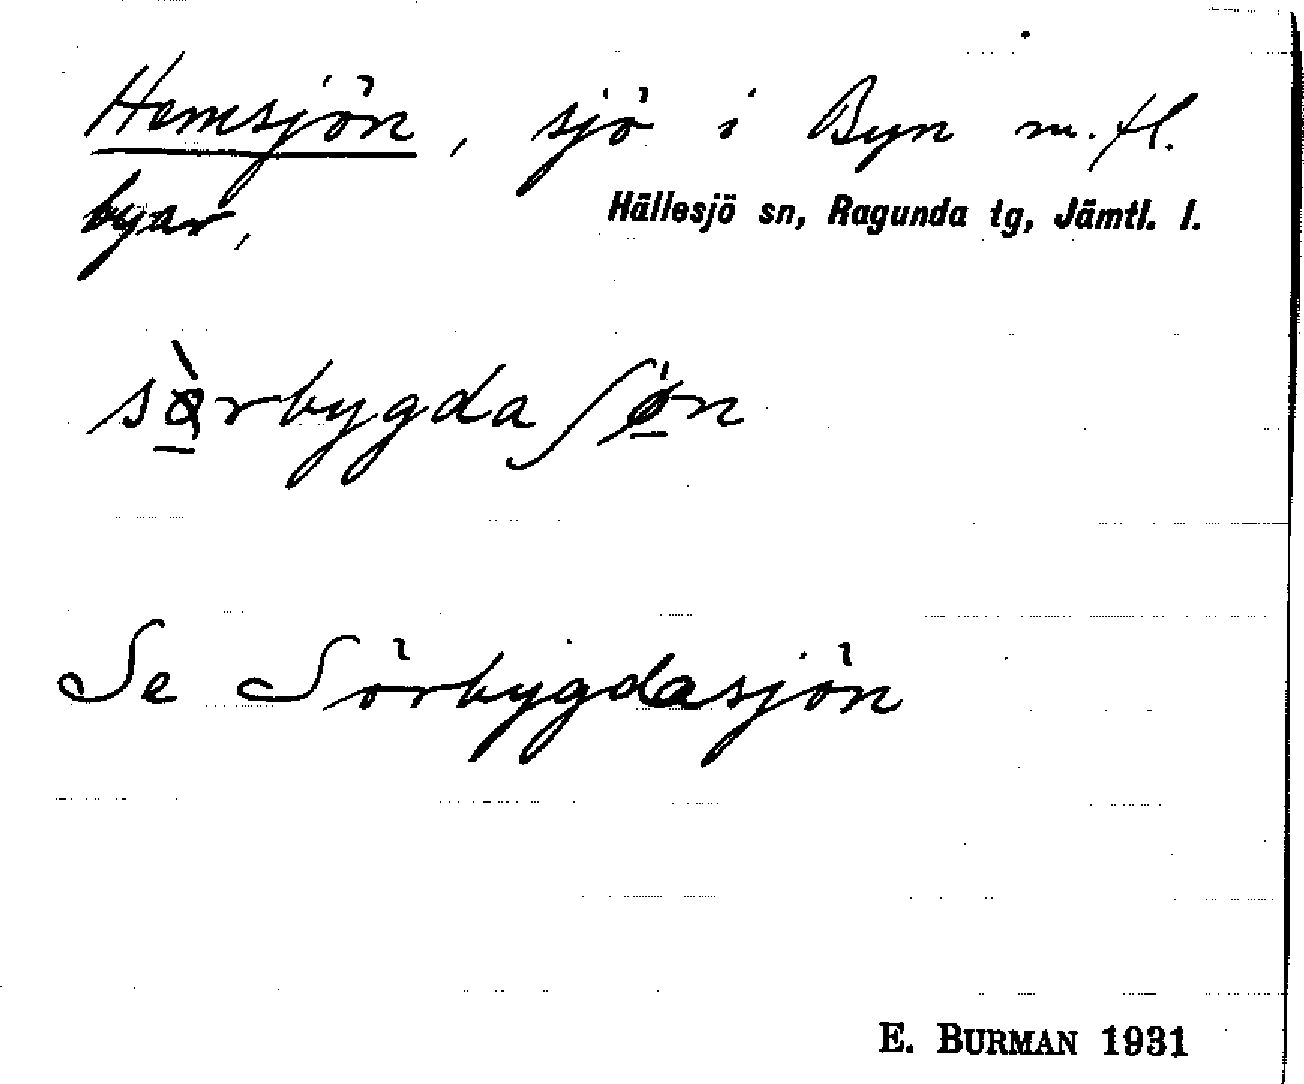 Hemsjön, sjö i Byn m.fl.
byar, Hällesjö sn, Ragunda tg, Jämtl. l.
sø̀rbygdaʃøn
Se Sörbygdasjön
E. BURMAN 1931